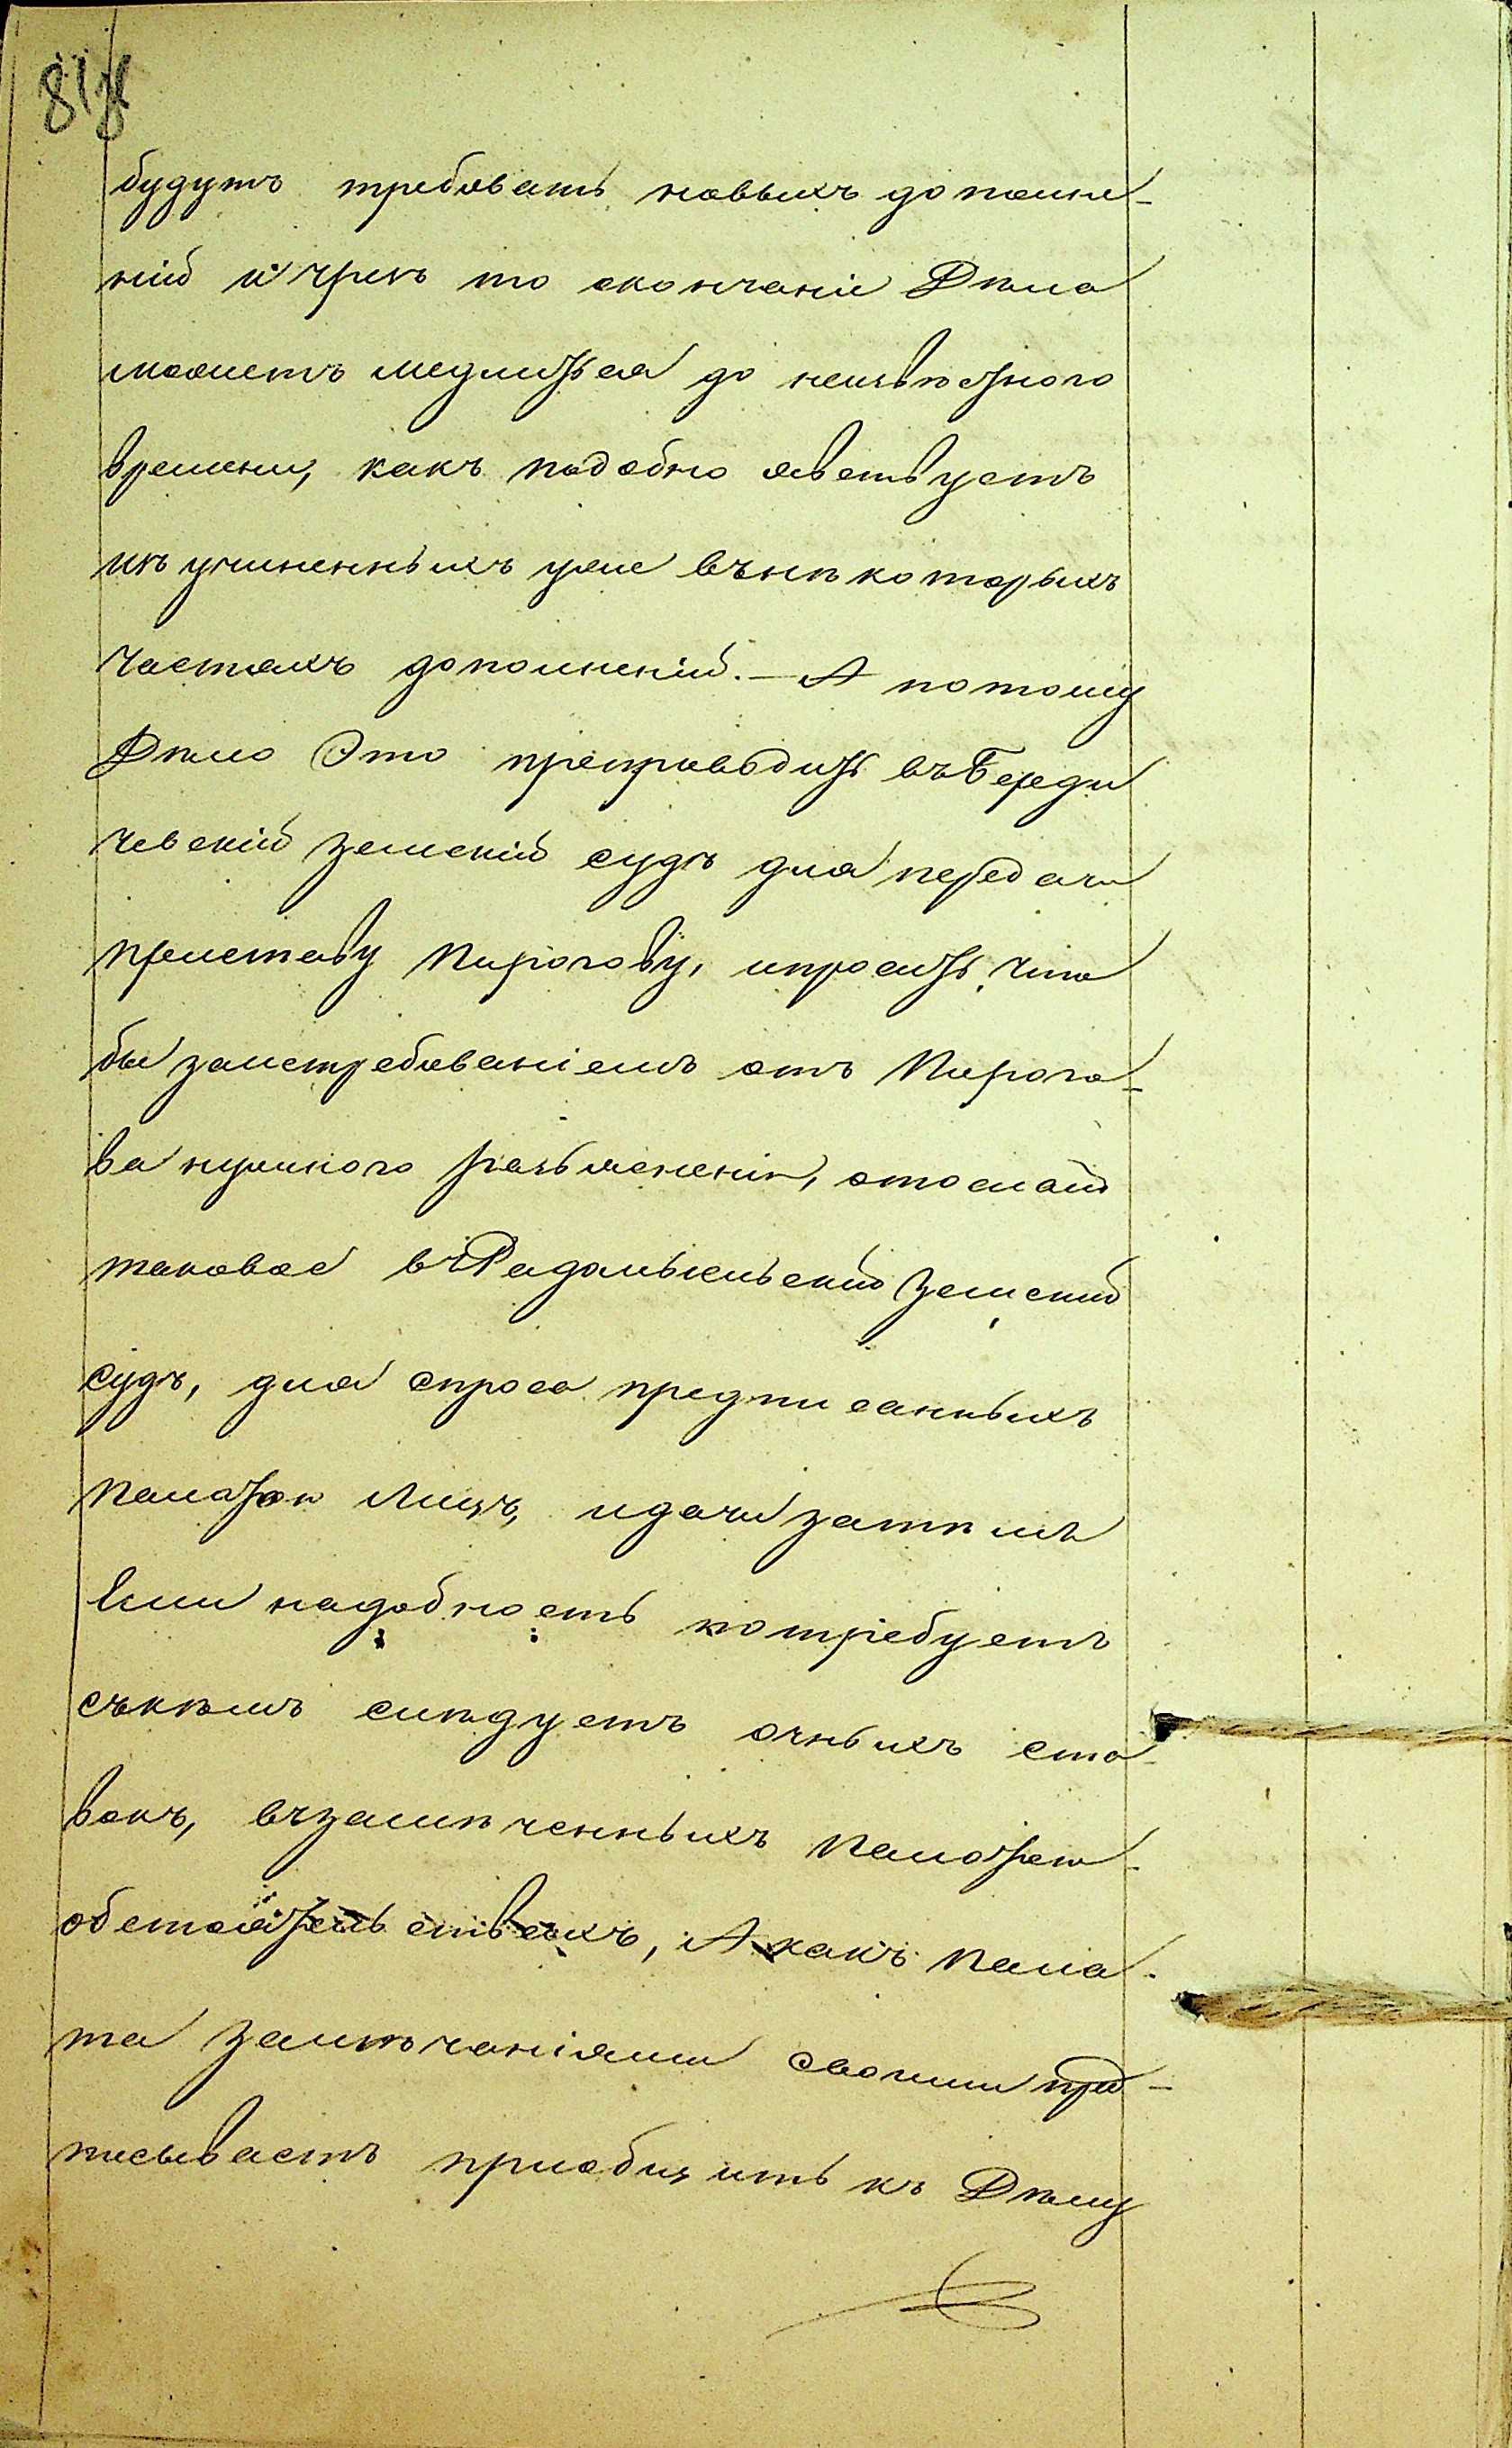 818
будутъ требовать новыхъ дополне-
ній и чрезъ то окончаніе Дѣла
можетъ медлиться до неизвѣстного
времени, какъ подобно явствуетъ
изъ учиненныхъ уже въ нѣкоторыхъ
частяхъ дополненій. — А потому
Дѣло Это препроводить въ Берди
чевскій Земскій судъ для передачи
приставу Пирогову, и просить, что
бы за истребованіемъ отъ Пирого-
ва нужного разъясненія, отослалъ
таковое въ Радомысльскій Земскій
судъ, для спроса предписанныхъ
Палатою Лицъ, и дачи затѣмъ
Если надобность потребуетъ
съ кѣмъ слѣдуетъ очныхъ ста-
вокъ, въ замѣченныхъ Палатою
обстоятельствахъ, А какъ Пала-
та Замѣчаніями своими пред-
писываетъ приобщить къ Дѣлу